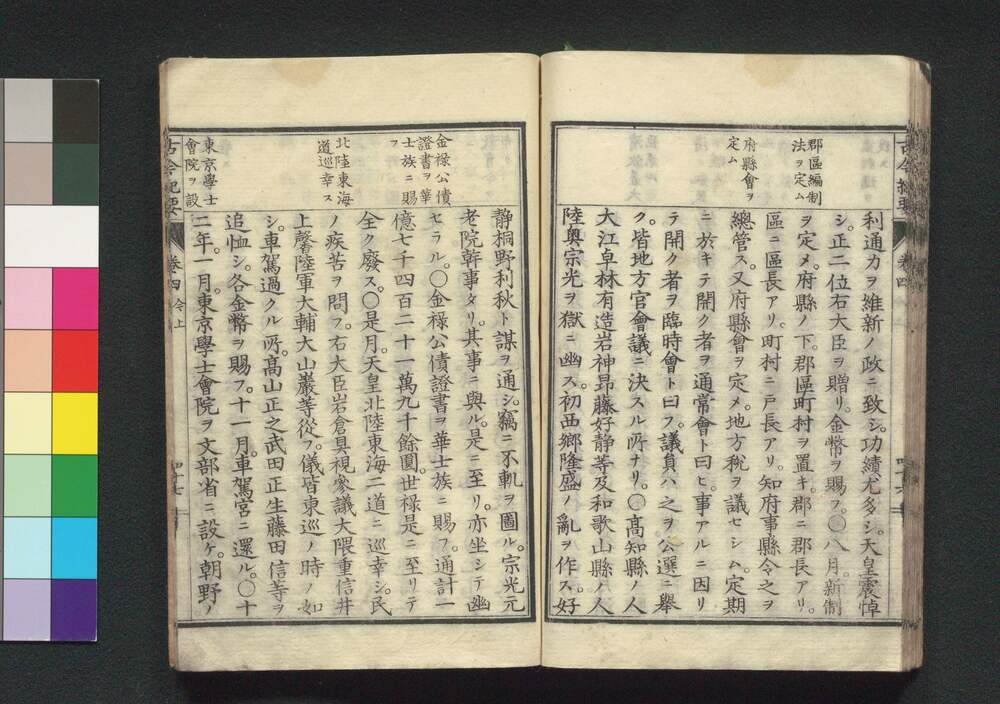 郡區編制
法ヲ定ム
府縣會ヲ
定ム
利通力ヲ維新ノ政ニ致シ。功績尤多シ。天皇震悼
シ。正二位右大臣ヲ贈リ。金幣ヲ賜フ。〇八月。新制
ヲ定メ。府縣ノ下。郡區町村ヲ置キ。郡ニ郡長アリ。
區ニ區長アリ。町村ニ戸長アリ。知府事縣令之ヲ
總管ス。又府縣會ヲ定メ。地方稅ヲ議セシム。定期
ニ於キテ開ク者ヲ通常會ト曰ヒ。事アルニ因リ
テ開ク者ヲ臨時會ト曰フ。議員ハ之ヲ公選ニ舉
ク。皆地方官會議ニ決スル所ナリ。〇髙知縣ノ人
大江卓林有造岩神昂藤好静等及和歌山縣ノ人
陸奥宗光ヲ獄ニ幽ス。初西郷隆盛ノ亂ヲ作ス。好
古今紀要
卷四
金祿公債
證書ヲ華
士族ニ賜
フ
北陸東海
道巡幸ス
東京學士
會院ヲ設
静桐野利秋ト謀ヲ通シ。竊ニ不軌ヲ圖ル。宗光元
老院幹事タリ。其事ニ與ル。是ニ至リ。亦坐シテ幽
セラル。〇金祿公債證書ヲ華士族ニ賜フ。通計一
億七千四百二十一萬九千餘圓。世祿是ニ至リテ
全ク廢ス。〇是月。天皇北陸東海二道ニ巡幸シ。民
ノ疾苦ヲ問フ。右大臣岩倉具視參議大隈重信井
上馨陸軍大輔大山巖等從フ。儀皆東巡ノ時ノ如
シ。車駕過クル所。髙山正之武田正生藤田信等ヲ
追恤シ。各金幣ヲ賜フ。十一月。車駕宮ニ還ル。〇十
二年。一月。東京學士會院ヲ文部省ニ設ケ。朝野ノ
古今紀要
卷四 今上
四十七